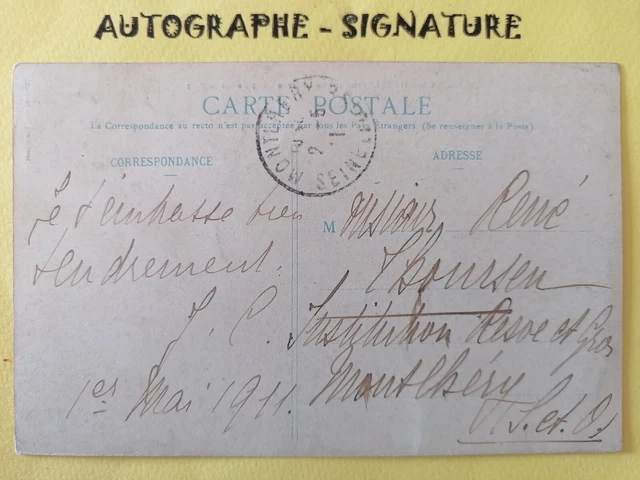 AUTOGRAPHE - SIGNATURE
CARTE POSTALE
La Correspondance au recto n'est pas acceptée par tous les Pays Étrangers. (Se renseigner à la Poste).
CORRESPONDANCE
Je t'embrasse bien
tendrement.
J. C.
1er Mai 1911.
ADRESSE
M Monsieur René
Institution et
Montlhéry
S. et. O.
MONTLHERY SEINE